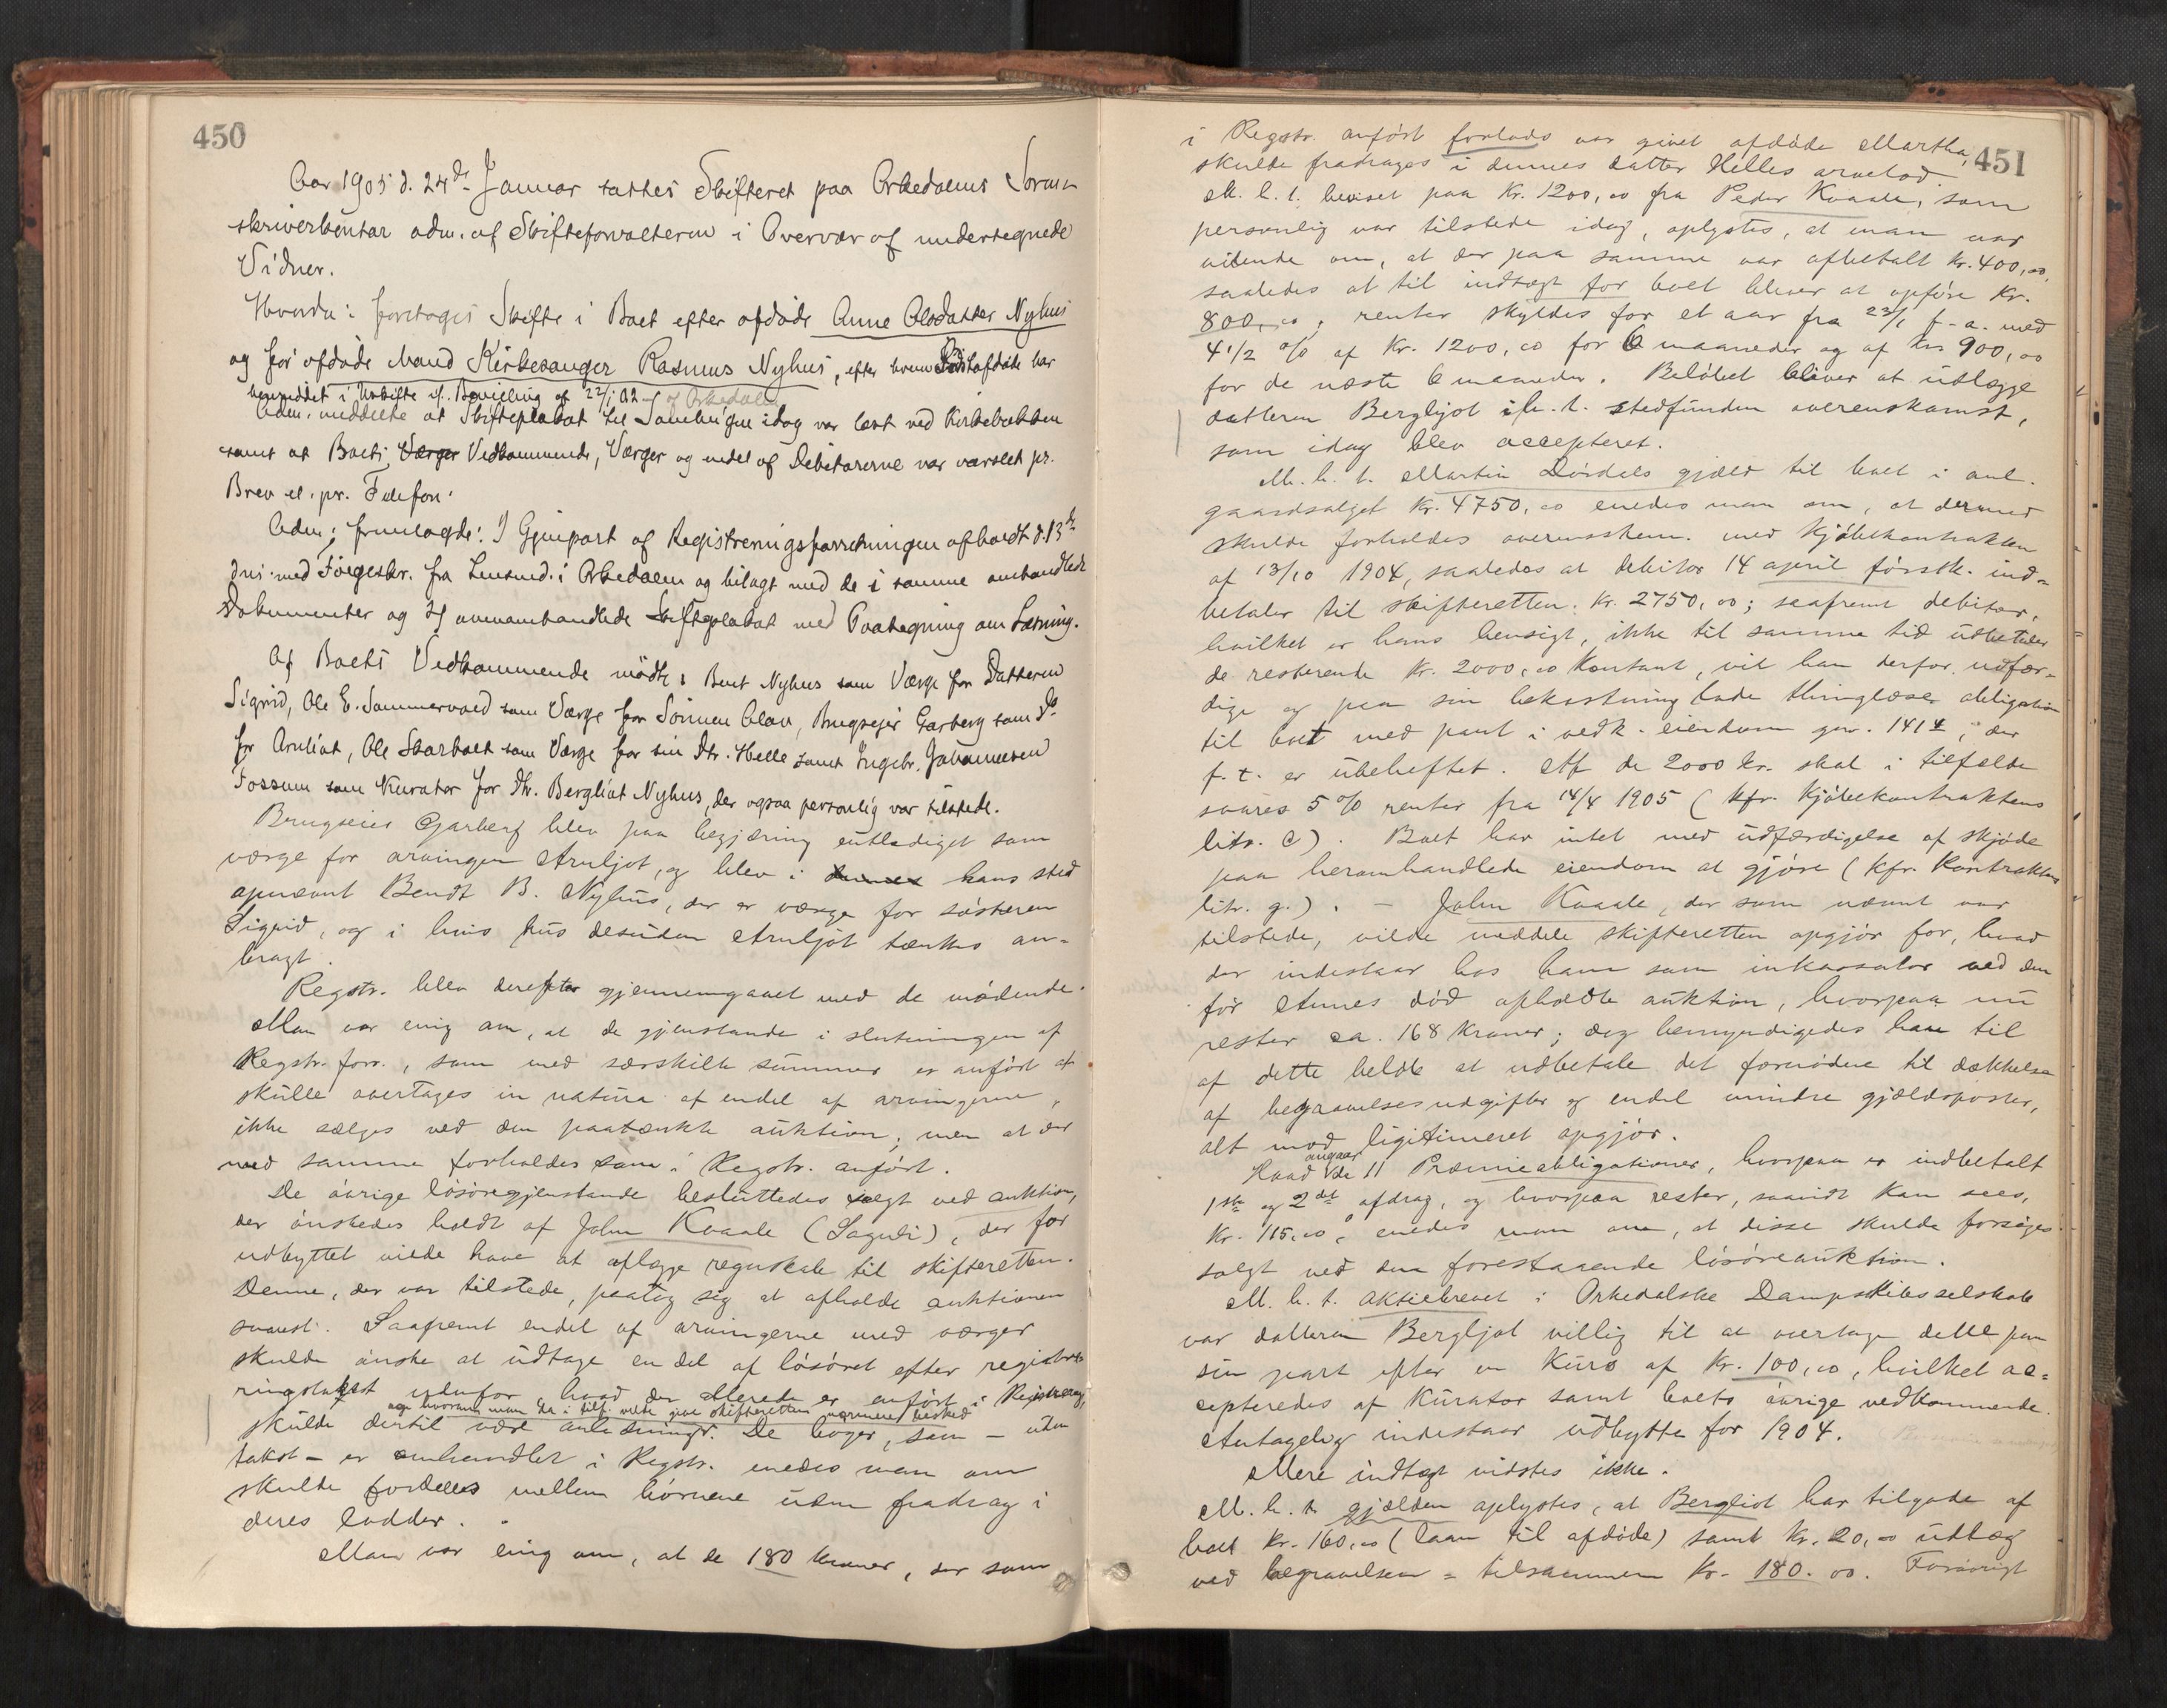 450
Aar 1905 d. 24de Januar sattes Skifteret paa Orkedalens Soren
skriverkontor adm. af Skifteforvalteren i Overvær af undertegnede
Vidner.
Hvorda: foretoges Skifte i Boet efter afdøde Anne Olsdatter Nyhus
og før afdøde Mand Kirkesanger Rasmus Nyhus, efter hvem Sidstafdøde har
hensiddet i Uskifte ifl. Bevilling af 22/1 92
Adm. meddelte at Skifteplakat til Samling idag var læst ved Kirkebakken
samt at Boets Værger Vedkommende, Værger og endel af Debitorerne var varslet pr.
Brev el. pr. Telefon.
Adm; fremlagde: I Gjenpart af Registreringsforretningen afholdt d. 13de
ds. med Følgeskr. fra Lensmd. i Orkedalen og bilagt med de i samme omhandlede
Dokumenter og II ovenomhandlede Skifteplakat med Paategning om Læsning.
Af Boets Vedkommende mødte: Bent Nyhus som Værge for Datteren
Sigrid, Ole E. Sommervold som Værge for Sønnen Olav, Brugseier Garberg som Do
for Arnliot, Ole Skarholt som Værge for sin Dtr. Helle samt Ingebr. Johannesen
Fossum som Kurator for Dtr. Bergliot Nyhus, der ogsaa personlig var tilstede.
Brugseier Garberg blev paa begjæring entlediget som
værge for arvingen Arnljot, og blev i hans sted
opnævnt Bendt B. Nyhus, der er værge for søsteren
Sigrid, og i hvis hus desuden Arnljot tænkes an-
bragt.
Regstr. blev derefter gjennemgaaet med de mødende.
Man var enig om, at de gjenstande i slutningen af
Regstr. forr., som med særskilte summer er anført at
skulle overtages in natura af endel af arvingerne,
ikke sælges ved den paatænkte auktion; men at der
med samme forholdes som i Regstr. anført.
De øvrige løsøregjenstande besluttedes solgt ved auktion,
der ønskedes holdt af John Kvaale (Sagvli), der for
udbyttet vilde have at aflægge regnskab til skifteretten.
Denne, der var tilstede, paatog sig at afholde auktionen
snarest. Saafremt endel af arvingerne med værger
skulde ønske at udtage en del af løsøret efter registre-
ringstakst udenfor, hvad der allerede er anført i Registrering,
og hvorom man da i tilf. vilde give skifteretten nærmere besked
skulde dertil være anledning. De bøger, som – uden
takst – er omhandlet i Regstr. enedes man om
skulde fordeles mellem børnene uden fradrag i
deres lodder.
Man var enig om, at de 180 kroner, der som
451
i Regstr. anført forlods var givet afdøde Martha,
skulde fradrages i dennes datter Helles arvelod.
M. h. t. beviset paa Kr. 1200,00 fra Peder Kvaale, som
personlig var tilstede idag, oplystes, at man var
vidende om, at der paa samme var afbetalt Kr. 400,00,
saaledes at til indtægt for boet bliver at opføre Kr.
800,00; renter skyldes for et aar fra 22/1 f. a. med
4 1/2 % af Kr. 1200,00 for 6 maaneder og af Kr 900,00
for de næste 6 maaneder. Beløbet bliver at udlægge
datteren Bergljot ifl. t. stedfunden overenskomst,
som idag blev accepteret.
M. h. t. Martin Dørdals gjæld til boet i anl.
gaardsalget Kr. 4750,00 enedes man om, at dermed
skulde forholdes overensstem. med Kjøbekontrakten
af 13/10 1904, saaledes at debitor 14 april førstk. ind-
betaler til skifteretten Kr. 2750,00; saafremt debitor,
hvilket er hans hensigt, ikke til samme tid udbetaler
de resterende Kr. 2000,00 Kontant, vil han derfor udfær-
dige og paa sin bekostning lade thinglæse obligation
til boet med pant i vedk. eiendom gnr. 141 4, der
f. t. er ubeheftet. Af de 2000 kr. skal i tilfælde
svares 5 % renter fra 14/4 1905 (kfr. Kjøbekontraktens
litr. c). Boet har intet med udfærdigelse af skjøde
paa heromhandlede eiendom at gjøre (kfr. Kontraktens
litr. g.). – John Kvaale, der som nævnt var
tilstede, vilde meddele skifteretten opgjør for, hvad
der indestaar hos ham som inkassator ved den
før Annes død afholdte auktion, hvorpaa nu
rester ca. 168 Kroner; dog bemyndigedes han til
af dette beløb at udbetale det fornødne til dækkelse
af begravelsesudgifter og endel mindre gjældsposter,
alt mod ligitimeret opgjør.
Hvad angaar de 11 Præmieobligationer, hvorpaa er indbetalt
1ste og 2det afdrag, og hvorpaa rester, saavidt kan sees,
Kr. 115,00, enedes man om, at disse skulde forsøges
solgt ved den forestaaende løsøreauktion.
M. h. t. aktiebrevet i Orkedalske Dampskibsselskab
var datteren Bergljot villig til at overtage dette paa
sin part efter en Kurs af Kr. 100,00, hvilket ac-
cepteredes af Kurator samt boets øvrige vedkommende.
Antagelig indestaar udbytte for 1904.
Mere indtægt vidstes ikke.
M. h. t. gjælden oplystes, at Bergliot har tilgode af
boet Kr. 160,00 (laan til afdøde) samt Kr. 20,00 udlæg
ved begravelsen = tilsammen Kr. 180.00. Forøvrigt